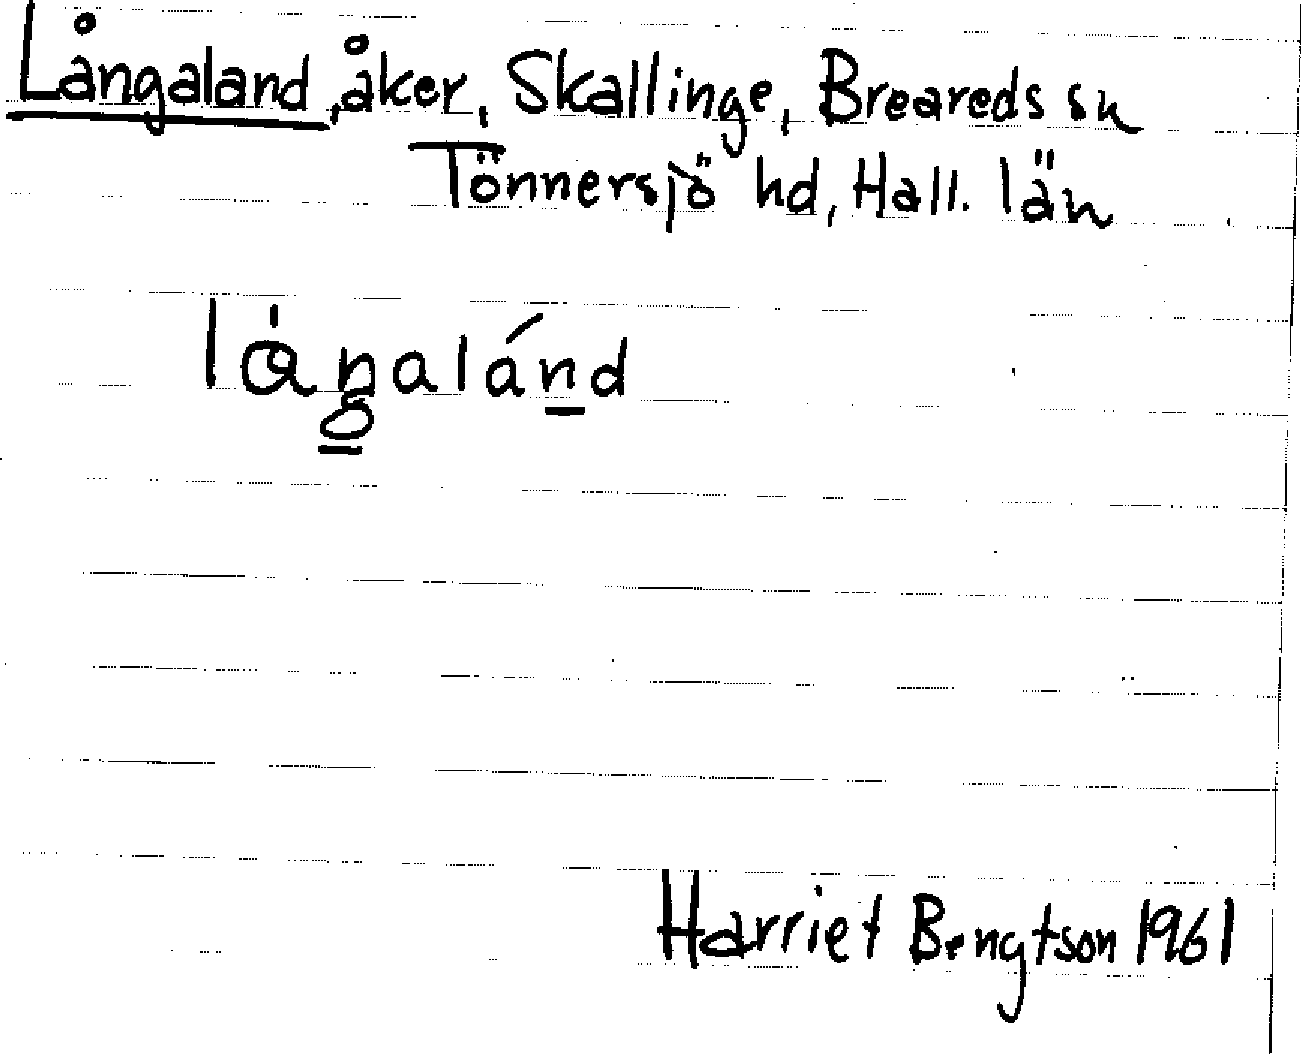 Långaland, åker, Skallinge, Breareds sn
Tönnersjö hd, Hall. län
Harriet Bengtson 1961